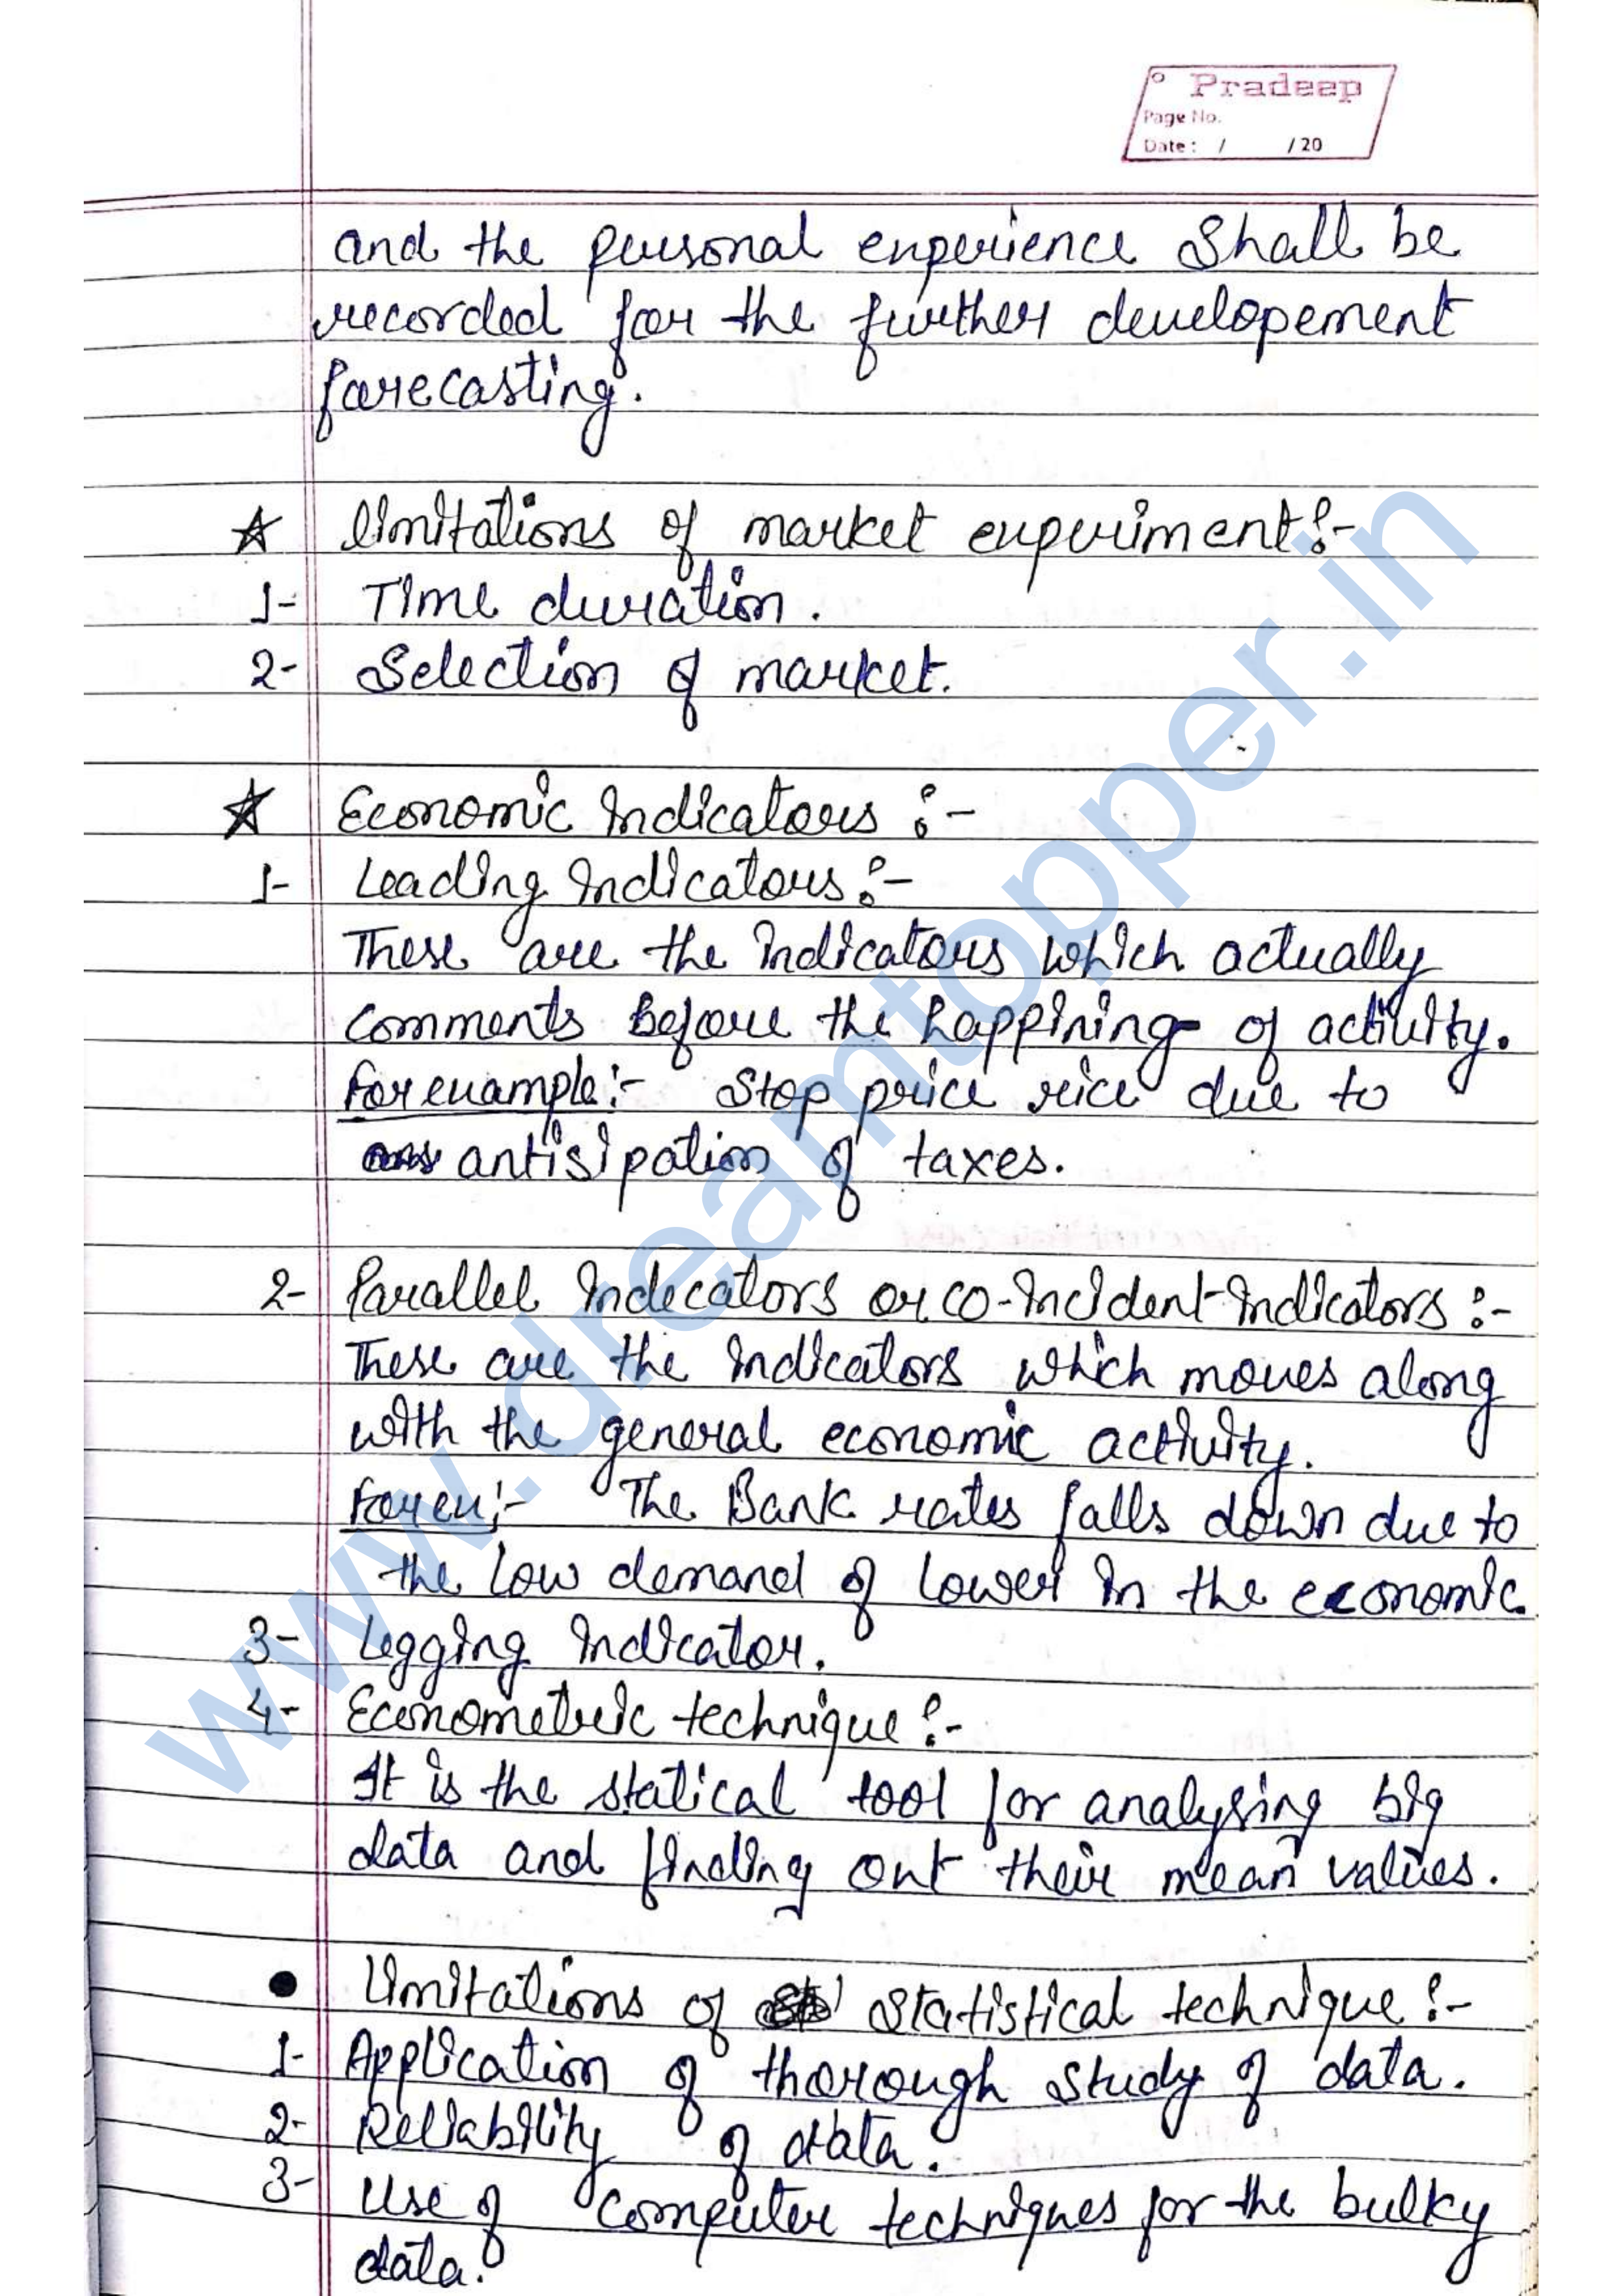 Pradeep
Page No.
Date: / /20
and the personal experience Shall be
recorded for the further developement
forecasting.
☆ limitations of market experiment:-
1- Time duration.
2- Selection of market.
☆ Economic Indicators :-
1- Leading Indicators :-
These are the indicators which actually
comments Before the happining of activity.
For example:- Stop price rice due to
antisipation of taxes.
2- Parallel Indecators or co-incident-Indicators :-
These are the indicators which moves along
with the general economic activity.
For ex:- The Bank rates falls down due to
the low demand of lower in the economic.
3- Legging indicator.
4- Econometric technique :-
It is the statical tool for analysing big
data and finding out their mean values.
● Limitations of Statistical technique :-
1- Application of thorough study of data.
2- Reliability of data.
3- Use of Computer techniques for the bulky
data.
www.dreamtopper.in